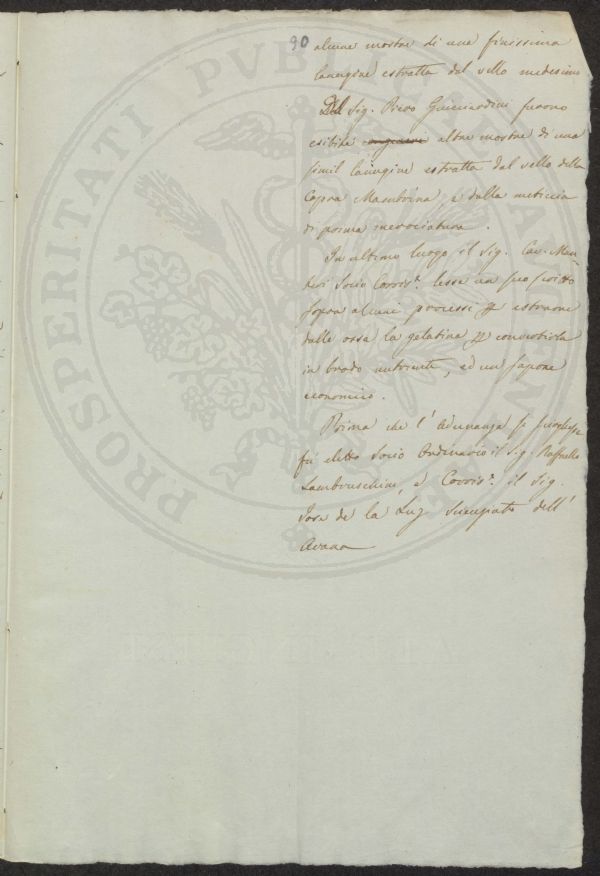 90
alcune mostre di una finissima
lanugine estratta dal vello medesimo
Dal Sig. Piero Guicciardini furono
esibite altre mostre di una
simil lanugine estratta dal vello della
Capra Mambrina, e dalla meticcia
di prima incrociatura.
In ultimo luogo il Sig. Cav.
Socio Corris.e lesse un suo scritto
sopra alcuni processi p estrarre
dalle ossa la gelatina p convertirla
in brodo nutriente, ed un sapone
economico.
Prima che l'adunanza si sciogliesse
fù eletto Socio Ordinario il Sig. Raffaello
Lambruschini, e Corris.e il Sig.
Jose de la Luz dell'
Avana
PROSPERITATI PUBLICAE AUGENDAE